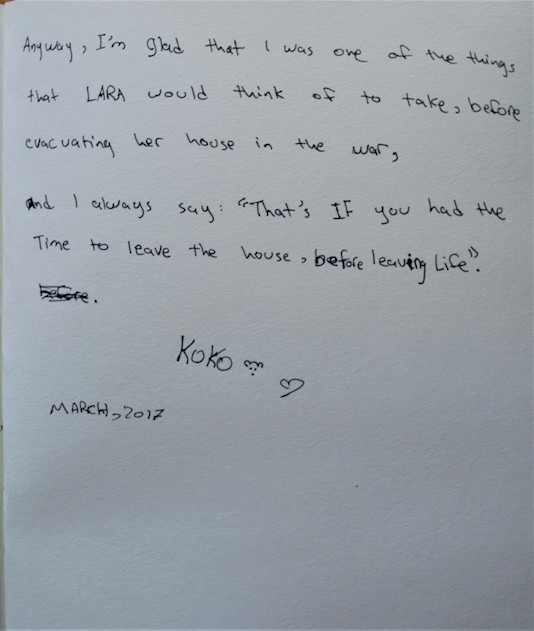 Anyway, I'm glad that I was one of the things
that LARA would think of to take, before
evacuating her house in the war,
And I always say: "That's IF you had the
Time to leave the house, before leaving Life".
before.
KOKO
MARCH, 2017